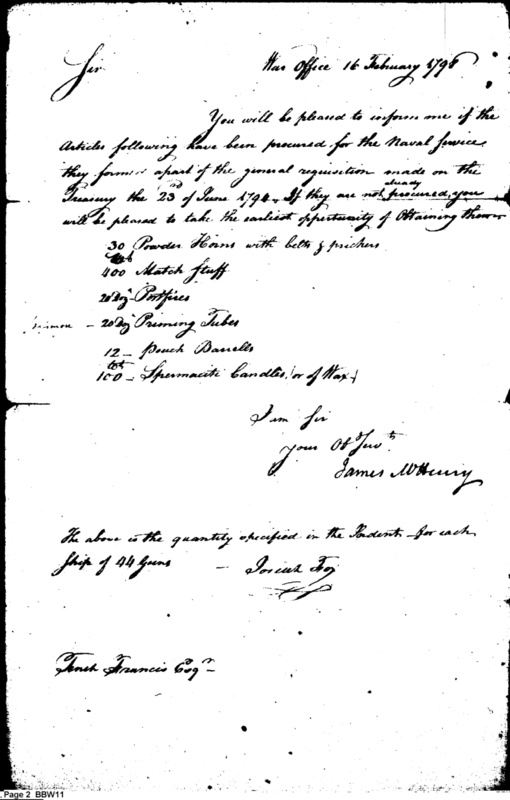 War Office 16 February 1798
Sir
You will be pleased to inform me if the
Articles following have been procured for the Naval Service
they formed apart of the general requisition made on the
Treasury the 23d of June 1794. If they are not already procured, you
will be pleased to take the earliest oppertunity of Obtaining them
30 Powder Horns with belts & prickers
400 Match Stuff
20 Doz Portfires
20 Doz Priming Tubes
12 Pouch Barrells
100 Spermaciti Candles (or of Wax)
I am Sir
your Ob Servt
James McHenry
The above is the quantity specified in the Indent for each
Ship of 44 Guns - Josiah Fox
Tench Francis Esqr
. Page 2 BBW11